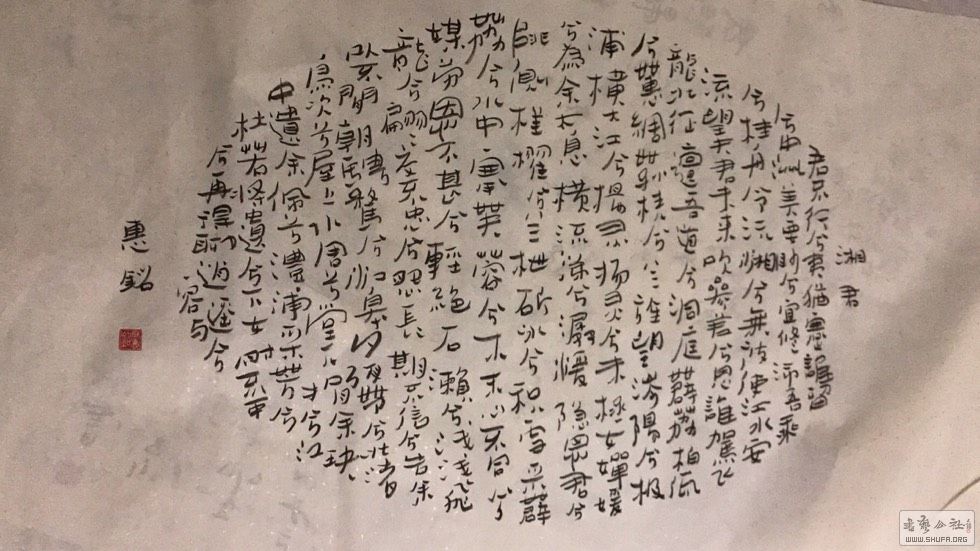 湘君
君不行兮夷猶蹇誰留
兮中洲美要眇兮宜修沛吾乘
兮桂舟令沅湘兮無波使江水安
流望君未來吹參差兮思誰駕飛
龍北征邅吾道兮洞庭薜荔柏
兮蕙綢桡兮兰旌望涔陽兮极
浦橫大江兮揚灵揚灵兮未極女嬋媛
兮為余太息橫流涕兮潺湲隱思君兮
陫側櫂兮兰枻斫冰兮积雪采薜
荔兮水中搴芙蓉兮木末心不同兮
媒勞恩不甚兮輕絕石瀨兮浅浅飛
龍兮翩交不忠兮怨長期不信兮告余
以不閒朝騁騖兮江皋夕弭節兮北渚
鳥次兮屋上水周兮堂下捐余玦兮江
中遺余佩兮澧浦采芳兮
杜若將遺兮下女時不可
兮再得聊逍遥兮
容与
惠銘
www.shufa.org